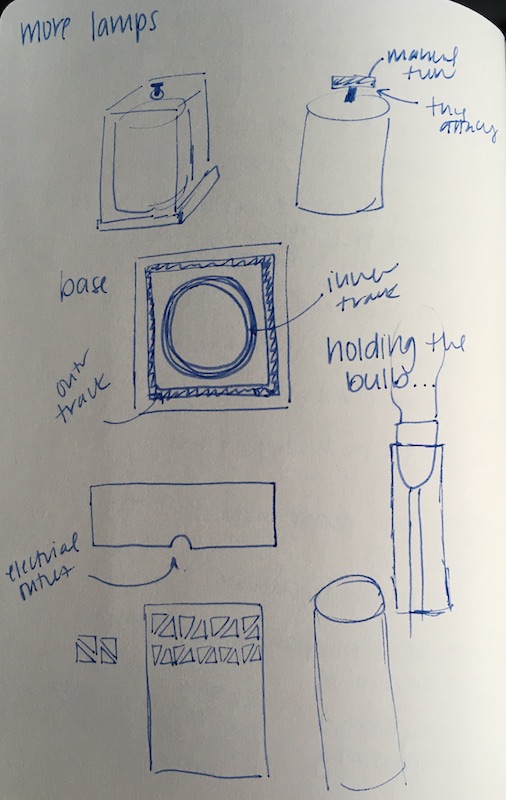 more lamps
manual
turn
tiny
base
inner
track
outer
track
holding the
bulb...
electrical
outlet